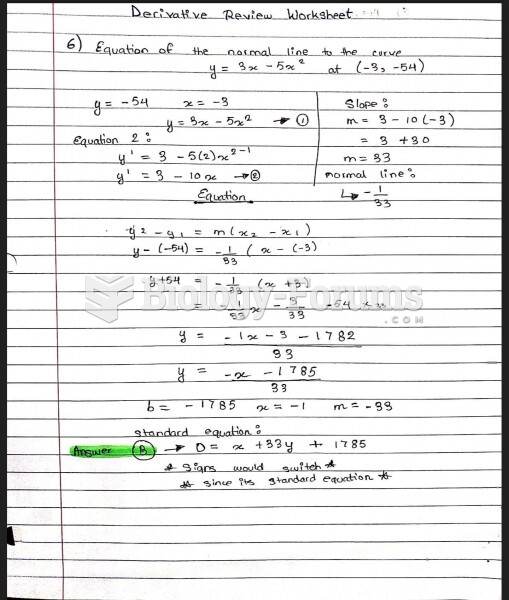 Derivative Review Worksheet
6) Equation of the normal line to the curve
y = 3x - 5x² at (-3, -54)
y = -54 x = -3
y = 3x - 5x² → ①
Equation 2 :
y' = 3 - 5(2)x²⁻¹
y' = 3 - 10x → ②
Slope :
m = 3 - 10(-3)
= 3 + 30
m = 33
normal line :
↳ - 1/33
Equation
y2 - y1 = m(x2 - x1)
y - (-54) = -1/33 (x - (-3)
y + 54 = -1/33 (x + 3)
Biology-Forums
.COM
y = -1x - 3 - 1782 / 33
y = -x - 1785 / 33
b = -1785 x = -1 m = -33
standard equation :
Answer B → 0 = x + 33y + 1785
* Signs would switch *
* since its standard equation *